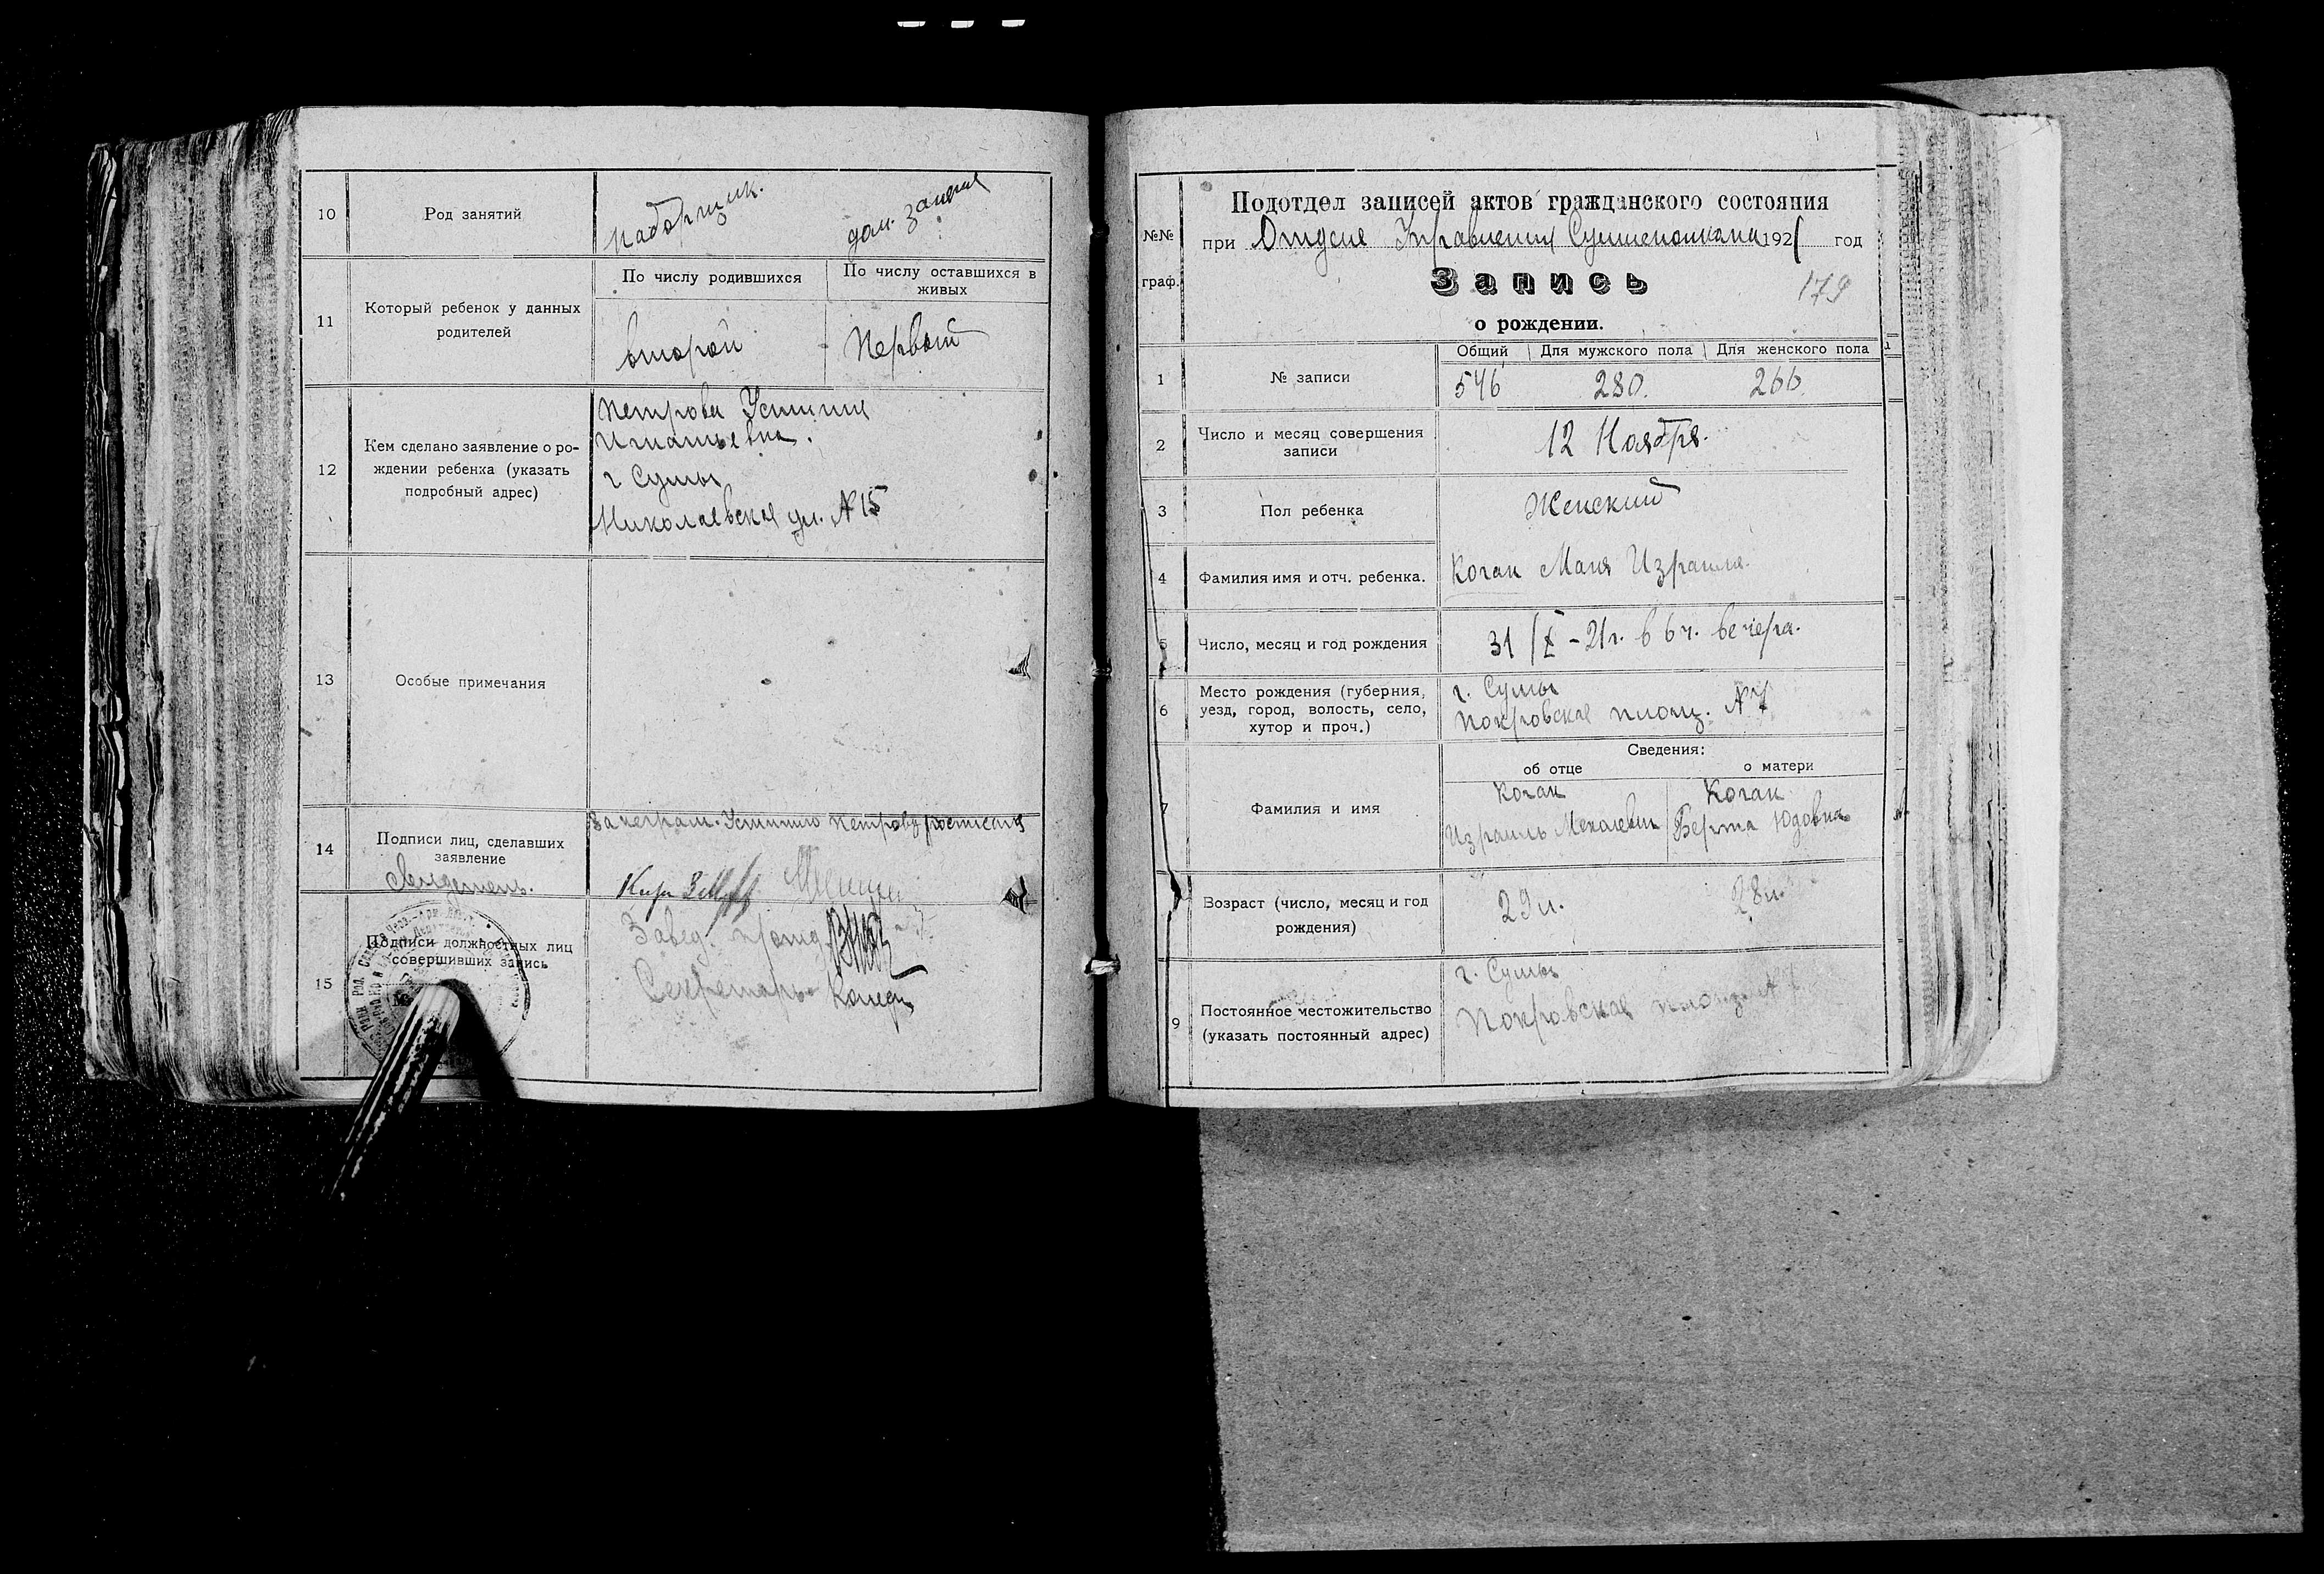 10
Род занятий
Наборщик.
дом. занятия
11
Который ребенок у данных
родителей
По числу родившихся
По числу оставшихся в
живых
второй
Первый
12
Кем сделано заявление о ро-
ждении ребенка (указать
подробный адрес)
Петрова Устинья
Игнатьевна.
г Сумы
Николаевская ул. № 15
13
Особые примечания
14
Подписи лиц, сделавших
заявление
Свидетель.
За неграм. Устинию Петрову росписался
15
Подписи должностных лиц
совершивших запись
Завед.
Секретарь
№№
граф.
Подотдел записей актов гражданского состояния
при Отделе Управления 1921 год
Запись
179
о рождении.
1
№ записи
Общий
Для мужского пола
Для женского пола
546
280.
266
2
Число и месяц совершения
записи
12 Ноября.
3
Пол ребенка
Женский
4
Фамилия имя и отч. ребенка.
Коган Маня Израиля.
5
Число, месяц и год рождения
31/X - 21 г. в 6 ч. вечера.
6
Место рождения (губерния,
уезд, город, волость, село,
хутор и проч.)
г. Сумы
Покровская площ. № 7
7
Фамилия и имя
Сведения:
об отце
о матери
Коган
Израиль
Коган
Берта Юдовна
Возраст (число, месяц и год
рождения)
29 л.
28 л.
9
Постоянное местожительство
(указать постоянный адрес)
г. Сумы
Покровская площ. № 7